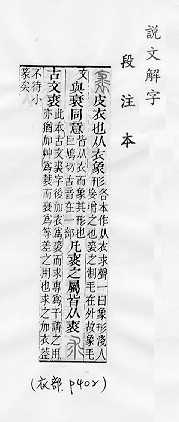 說文解字
段注本
裘 皮衣也从衣象形
各本作从衣求聲一曰象形淺人
妄增之也裘之制毛在外故象毛
文
與衰同意
皆从衣而象其形也
巨鳩切古音在一部
凡裘之屬皆从裘 求
古文裘
此本古文裘字後加衣爲裘而求專爲干請之用
亦猶加艸爲蓑而衰爲等差之用也求之加衣葢
不待小
篆矣
(衣部 p402)